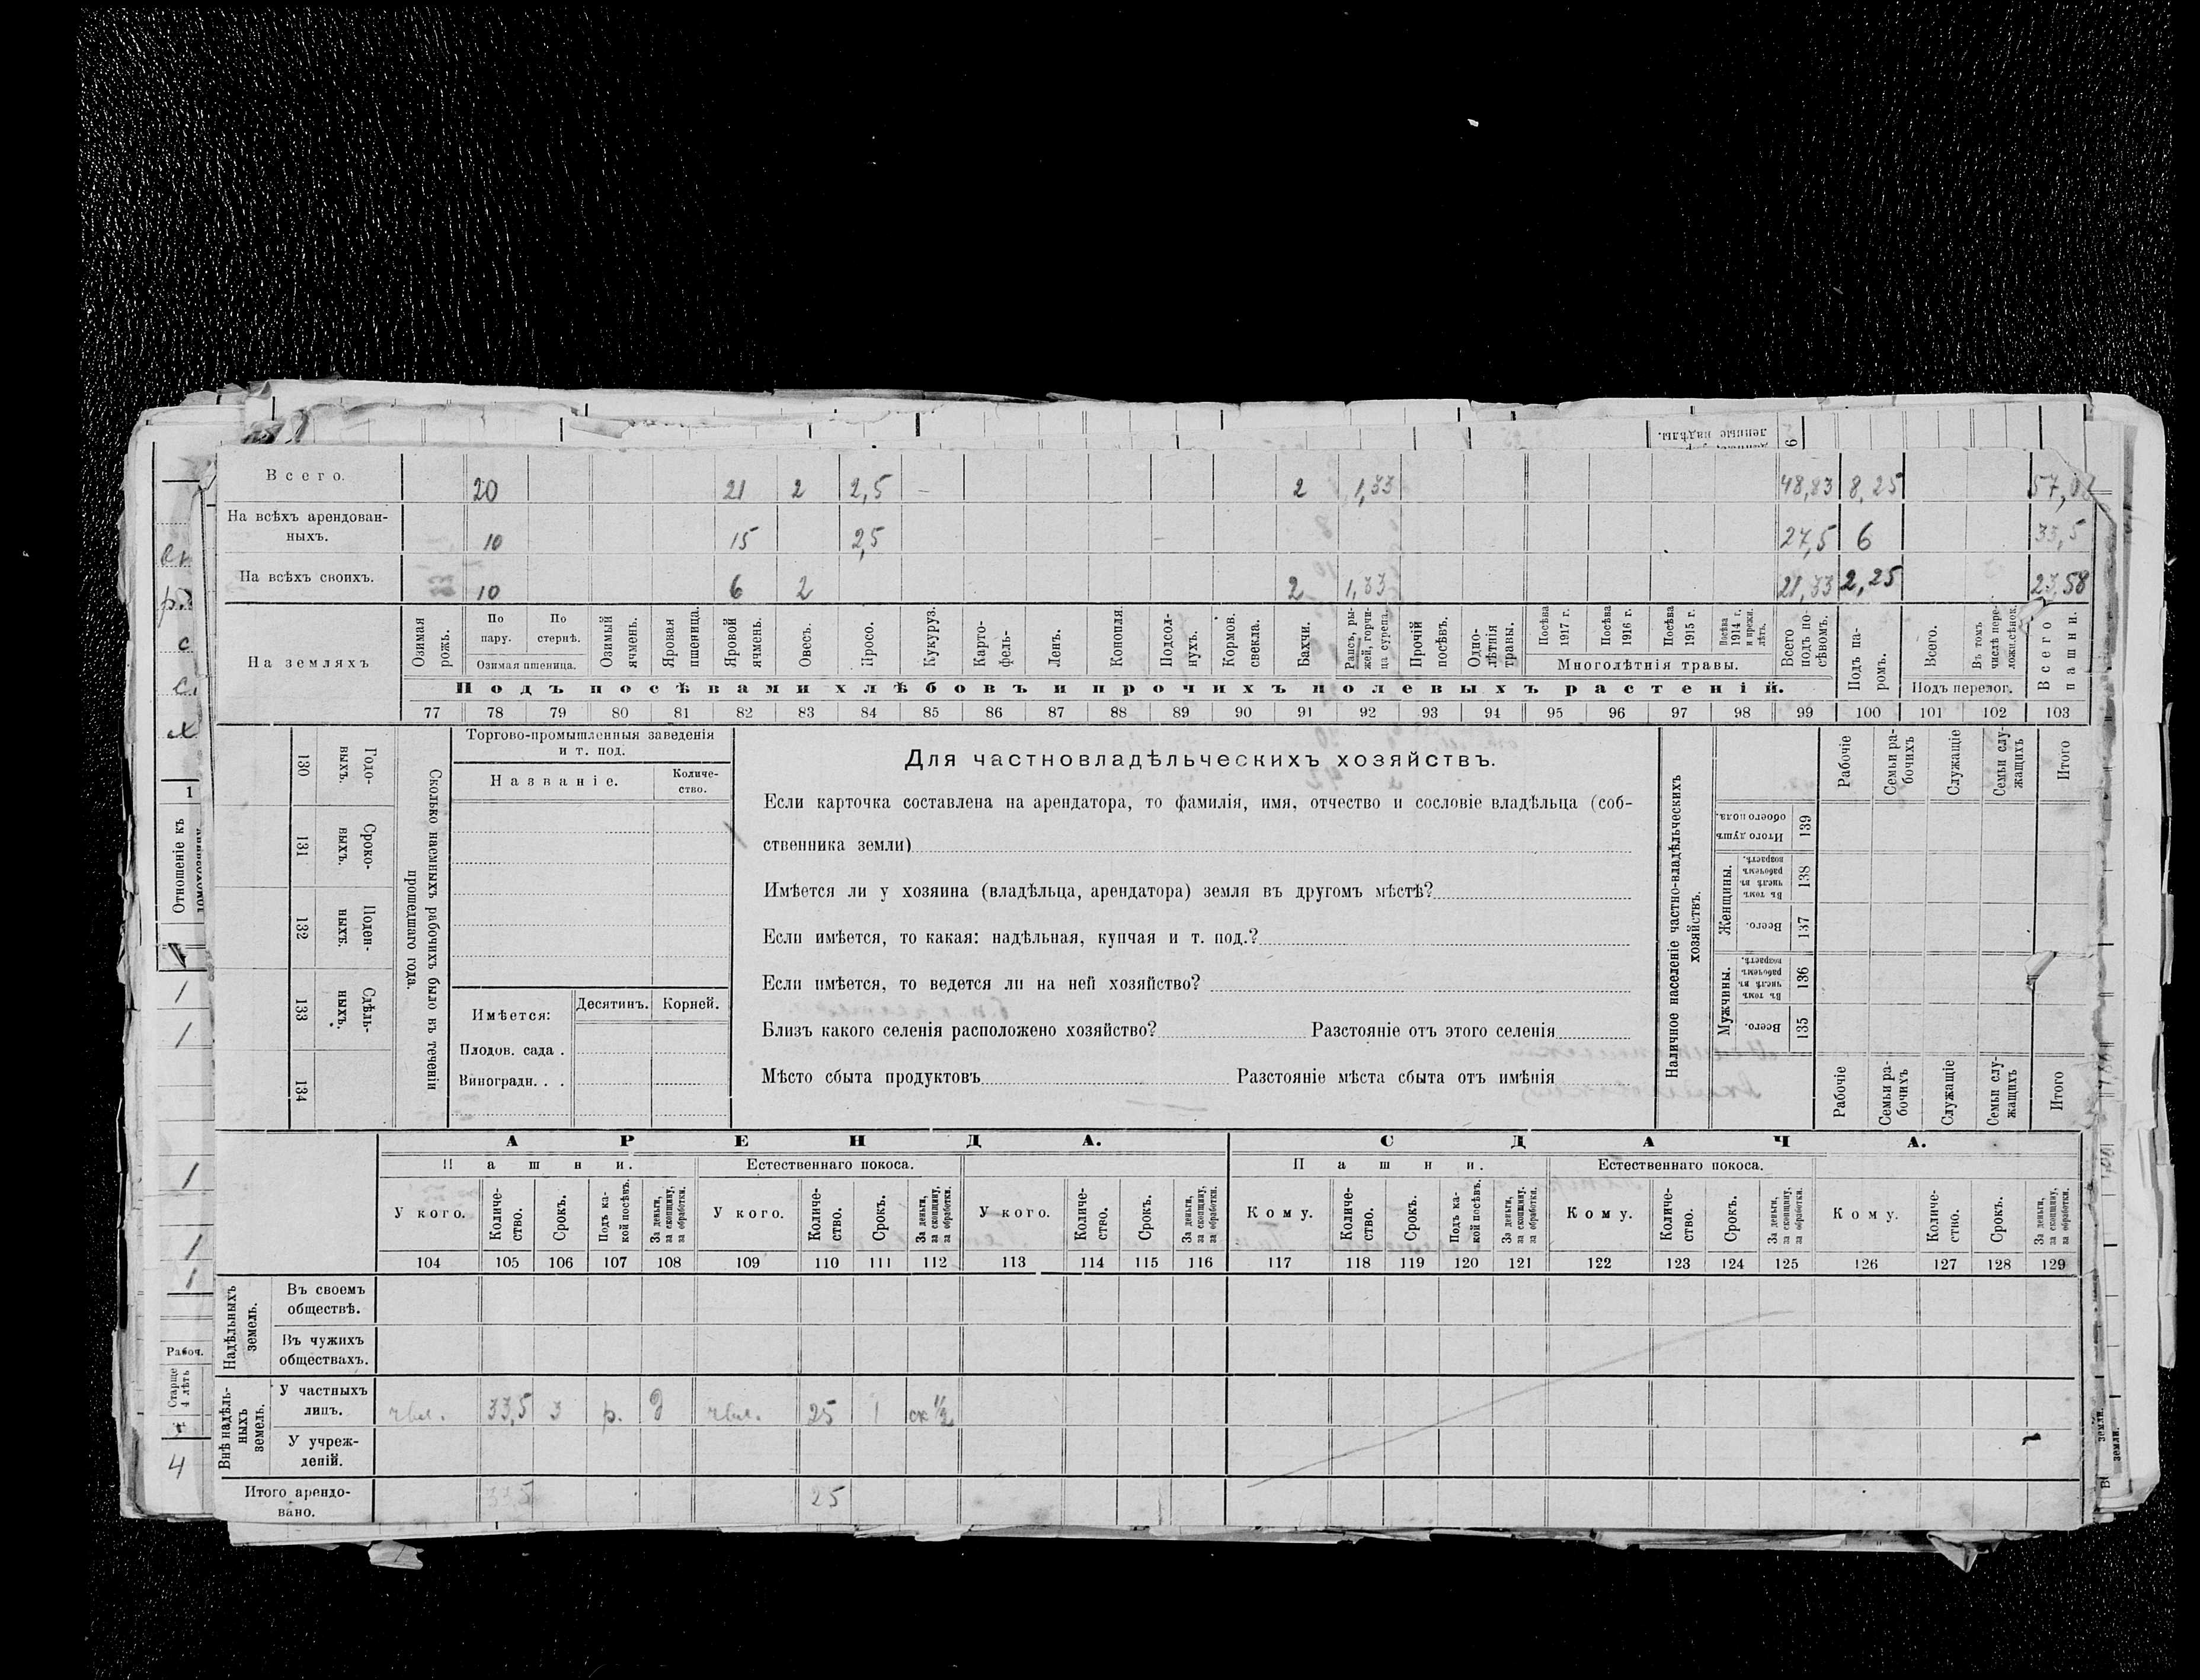 Всего. 20 21 2 2,5 – 2 1,33 48,83 8,25 57,08
На всѣхъ арендован-
ныхъ. 10 15 2,5 27,5 6 33,5
На всѣхъ своихъ. 10 6 2 2 1,33 21,33 2,25 23,58
На земляхъ
Озимая рожь.
По пару.
По стернѣ.
Озимая пшеница.
Озимый ячмень.
Яровая пшеница.
Яровой ячмень.
Овесъ.
Просо.
Кукуруз.
Карто-
фель-
Ленъ.
Конопля
Подсол-
нухъ.
Кормов.
свекла.
Бахчи.
Рапсъ, ры-
жей, горчи-
ца сурепа.
Прочій
посѣвъ.
Одно-
лѣтнія
травы.
Посѣва
1917 г.
Посѣва
1916 г.
Посѣва
1915 г.
Посѣва
1914 г.
и прежн.
лѣтъ.
Многолѣтнія травы.
Всего
подъ по-
сѣвомъ.
Подъ па-
ромъ.
Всего.
Въ томъ
числѣ пере-
Подъ перелог.
Всего
пашни.
Подъ посѣвами хлѣбовъ и прочихъ полевыхъ растеній.
77 78 79 80 81 82 83 84 85 86 87 88 89 90 91 92 93 94 95 96 97 98 99 100 101 102 103
130 Годо-
выхъ.
131 Сроко-
выхъ.
132 Поден-
ныхъ.
133 Сдѣль-
ныхъ.
134
Сколько наемныхъ рабочихъ было въ теченіи
прошедшаго года.
Торгово-промышленныя заведенія
и т. под.
Названіе.
Количе-
ство.
Имѣется:
Десятинъ. Корней.
Плодов. сада .
Виноградн. . .
Для частновладѣльческихъ хозяйствъ.
Если карточка составлена на арендатора, то фамилія, имя, отчество и сословіе владѣльца (соб-
ственника земли)
Имѣется ли у хозяина (владѣльца, арендатора) земля въ другомъ мѣстѣ?
Если имѣется, то какая: надѣльная, купчая и т. под.?
Если имѣется, то ведется ли на ней хозяйство?
Близъ какого селенія расположено хозяйство? Разстояніе отъ этого селенія
Мѣсто сбыта продуктовъ Разстояніе мѣста сбыта отъ имѣнія
Наличное населеніе частно-владѣльческихъ
хозяйствъ.
Рабочіе
Семьи ра-
бочихъ
Служащіе
Семьи слу-
жащихъ
Итого
Итого душъ
обоего пола.
139
Женщины.
Въ томъ
числѣ въ
рабочемъ
возрастѣ.
138
Всего.
137
Мужчины.
Въ томъ
числѣ въ
рабочемъ
возрастѣ.
136
Всего.
135
Рабочіе
Семьи ра-
бочихъ
Служащіе
Семьи слу-
жащихъ
Итого
АРЕНДА. СДАЧА.
Пашни. Естественнаго покоса. Пашни. Естественнаго покоса.
У кого.
Количе-
ство.
Срокъ.
Подъ ка-
кой посѣвъ.
За деньги,
за скопщину,
за обработки.
У кого.
Количе-
ство.
Срокъ.
За деньги,
за скопщину,
за обработки.
У кого.
Количе-
ство.
Срокъ.
За деньги,
за скопщину,
за обработки.
Кому.
Количе-
ство.
Срокъ.
Подъ ка-
кой посѣвъ.
За деньги,
за скопщину,
за обработки.
Кому.
Количе-
ство.
Срокъ.
За деньги,
за скопщину,
за обработки.
Кому.
Количе-
ство.
Срокъ.
За деньги,
за скопщину,
за обработки.
104 105 106 107 108 109 110 111 112 113 114 115 116 117 118 119 120 121 122 123 124 125 126 127 128 129
Надѣльныхъ
земель.
Въ своемъ
обществѣ.
Въ чужихъ
обществахъ.
Внѣ надѣль-
ныхъ
земель.
У частныхъ
лицъ. 33,5 3 р. д 25 1 ск 1/2
У учреж-
деній.
Итого арендо-
вано. 33,5 25
1
Отношеніе къ
1
1
1
1
1
Рабоч.
Старше
4 лѣтъ
4
земли.
земли.